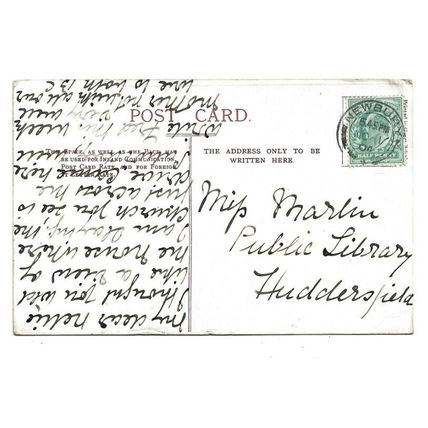 POST CARD.
THIS SPACE, AS WELL AS THE BACK, MAY
BE USED FOR INLAND COMMUNICATION.
POST CARD RATE AND FOR FOREIGN
THE ADDRESS ONLY TO BE
WRITTEN HERE.
NEWBURY
HALFPENNY
Miss Marlin
Public Library
Huddersfield
My dear Nellie
I thought you wld
like a view of
the house where
I am staying, the
Church you see is
just across the
drive here
write
this week
Mother
very well
with all our
love to both